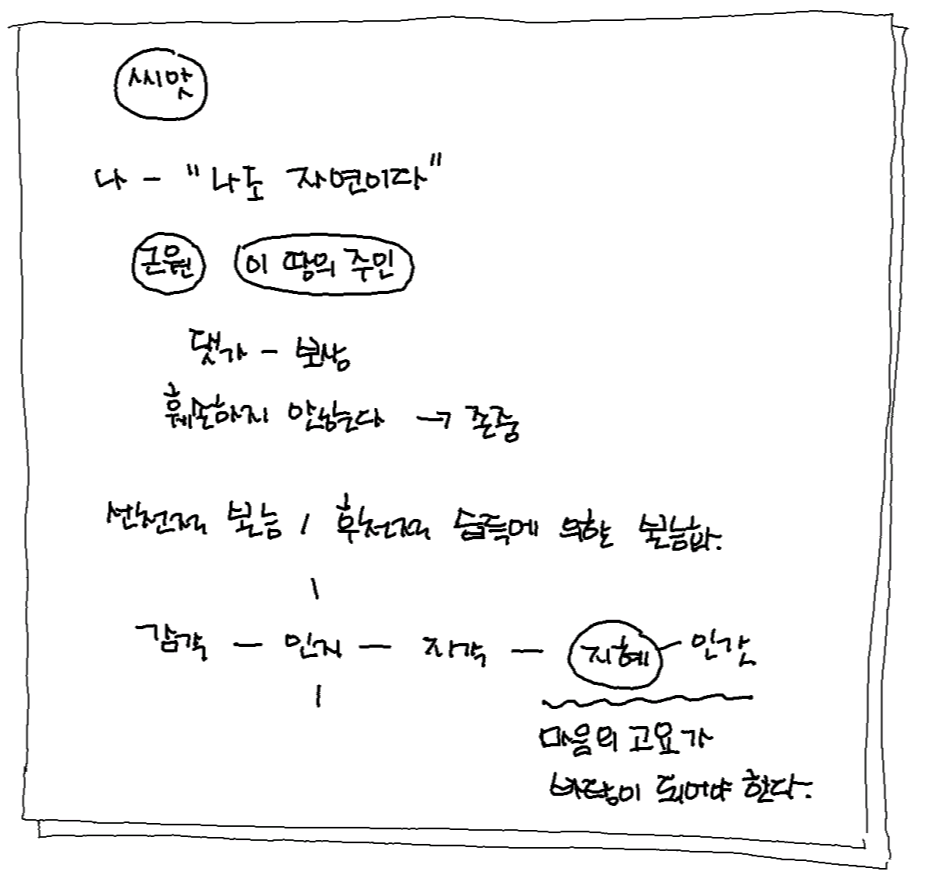 씨앗
나 - "나도 자연이다"
근원 이 땅의 주민
댓가 - 보상
훼손하지 안는다 → 존중
선천적 본능 / 후천적 습득에 의한
감각 - 인지 - 자각 - 지혜 - 인간
마음의 고요가
바탕이 되어야 한다.